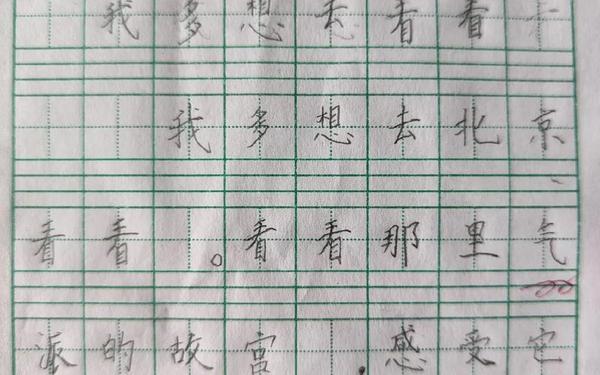 我多想去看看
我多想去北京
看看。看看那里气
派的故宫,感受它